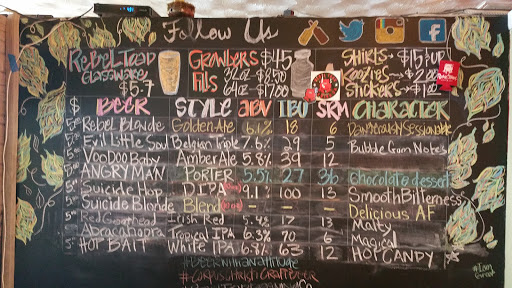 Follow Us
Rebel Toad
Glassware
$5-7
Growlers $45
Fills 32oz $8.50
64oz $17.00
Shirts → $15 & up
Koozies → $2.00
Stickers → $1.00
$ BEER STYLE ABV IBU SRM CHARACTER
5 Rebel Blonde Golden Ale 6.1% 18 6 Dangerously Sessionable
Evil Little Soul Belgian Triple 7.6% 29 5 Bubble Gum Notes
VooDoo Baby Amber Ale 5.8% 39 12
ANGRY MAN PORTER 5.5% 27 36 Chocolate dessert
Suicide Hop DIPA 9.1% 100 13 Smooth Bitterness
Suicide Blonde Blend - - - Delicious AF
Red Goathead Irish Red 17 13 Malty
Abracahopra Tropical IPA 6.3% 70 6 Magical
HOP BAIT White IPA 6.8% 63 12 HOP CANDY
#Beerwithanattitude
#CorpusChristiCraftBeer